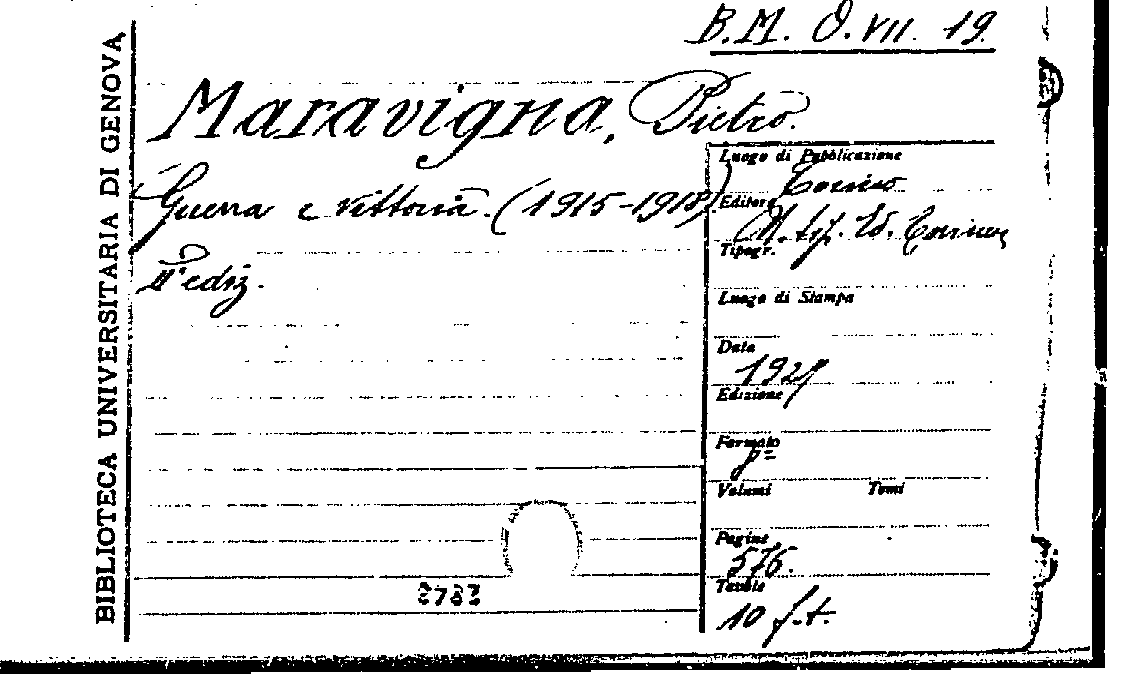 B.M. O. VII. 19
Maravigna, Pietro.
Guerra e vittoria. (1915-1918)
IIª ediz.
BIBLIOTECA UNIVERSITARIA DI GENOVA
Luogo di Pubblicazione
Torino
Editore
Tip. Ed. Torinese
Tipogr.
Luogo di Stampa
Data
Edizione
Formato
Volumi Tomi
Pagine
576.
Tavole
10 f.t.